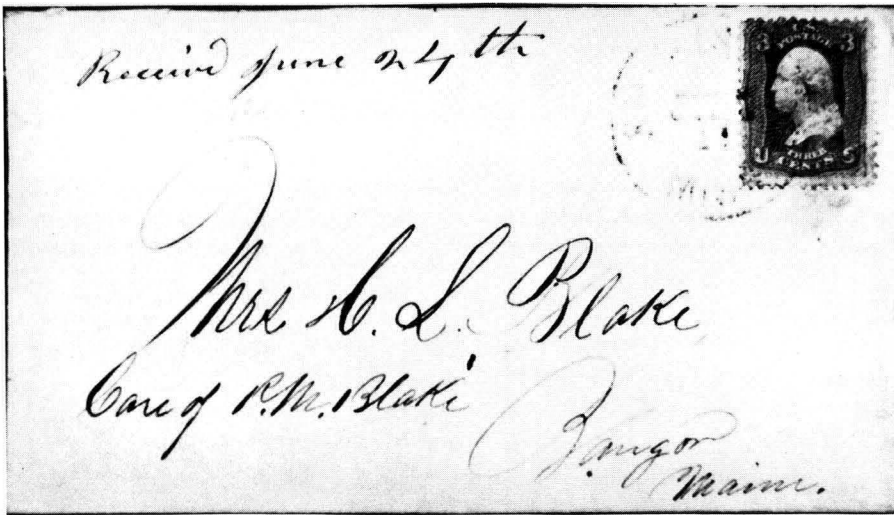 Received June 24th
3 POSTAGE 3
U THREE S
CENTS
Mrs H. L. Blake
Care of R.M. Blake
Bangor
Maine.